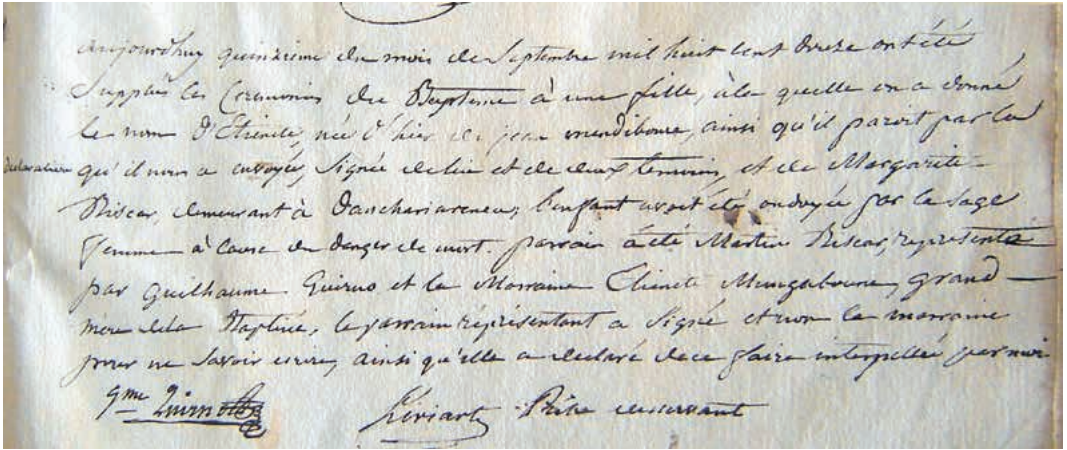 aujourdhuy quinzieme du mois de Septembre mil huit cent douze ont été
Supplées les Ceremonies du Baptême à une fille, à la quelle on a donné
le nom D'Etienete, née d'hier de jean mendiboure, ainsi qu'il paroit par la
declaration qu'il nous a envoyée, Signée de lui et de deux temoins, et de Margarite
Discar, demeurant à Danchariarenea; l'enfant avoit été ondoyée par la Sage
femme à cause du danger de mort. parrain a été Martin Discar, représenté
par Guilhaume et la Marraine Etienete Mungaboure, grand
mere de la Baptisée, le parrain réprésentant a Signé et non la marraine
pour ne Savoir ecrire, ainsi qu'elle a declaré de ce faire interpellée par moi
gme
Prêtre desservant